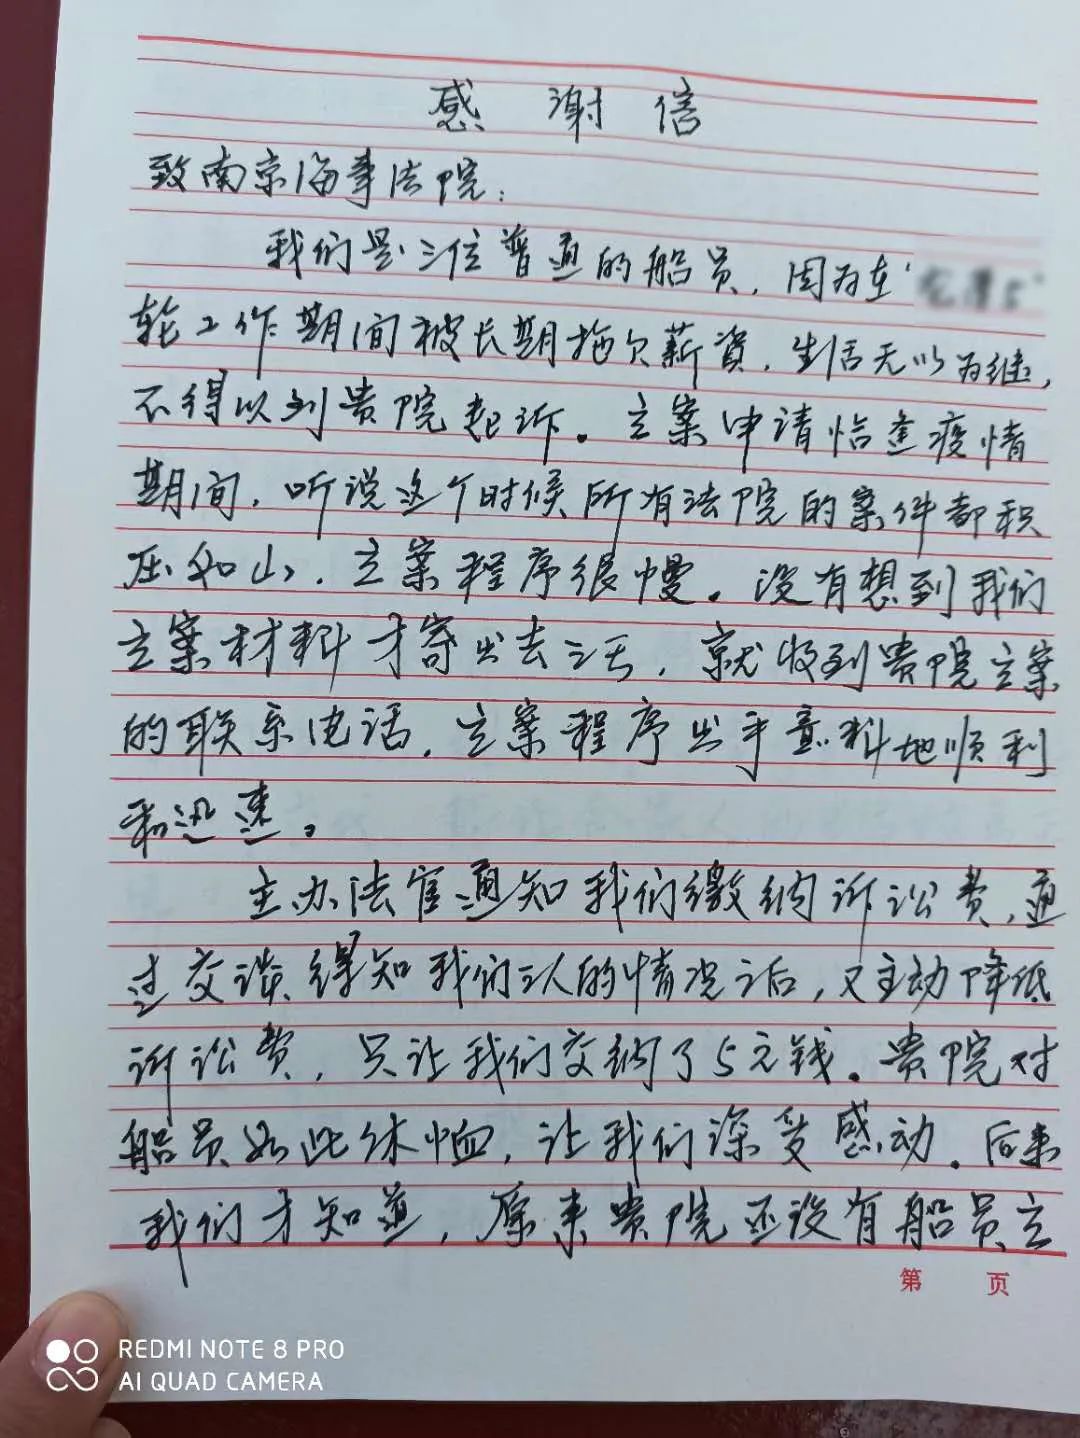 感谢信
致南京海事法院：
我们是三位普通的船员，因为在“
轮工作期间被长期拖欠薪资，生活无以为继，
不得以到贵院起诉。立案申请恰逢疫情
期间，听说这个时候所有法院的案件都积
压如山，立案程序很慢。没有想到我们
立案材料才寄出去三天，就收到贵院立案
的联系电话，立案程序出乎意料地顺利
和迅速。
主办法官通知我们缴纳诉讼费，通
过交谈得知我们三人的情况之后，又主动降低
诉讼费，只让我们交纳了5元钱。贵院对
船员如此体恤，让我们深受感动。后来
我们才知道，原来贵院还没有船员立
第 页
REDMI NOTE 8 PRO
AI QUAD CAMERA